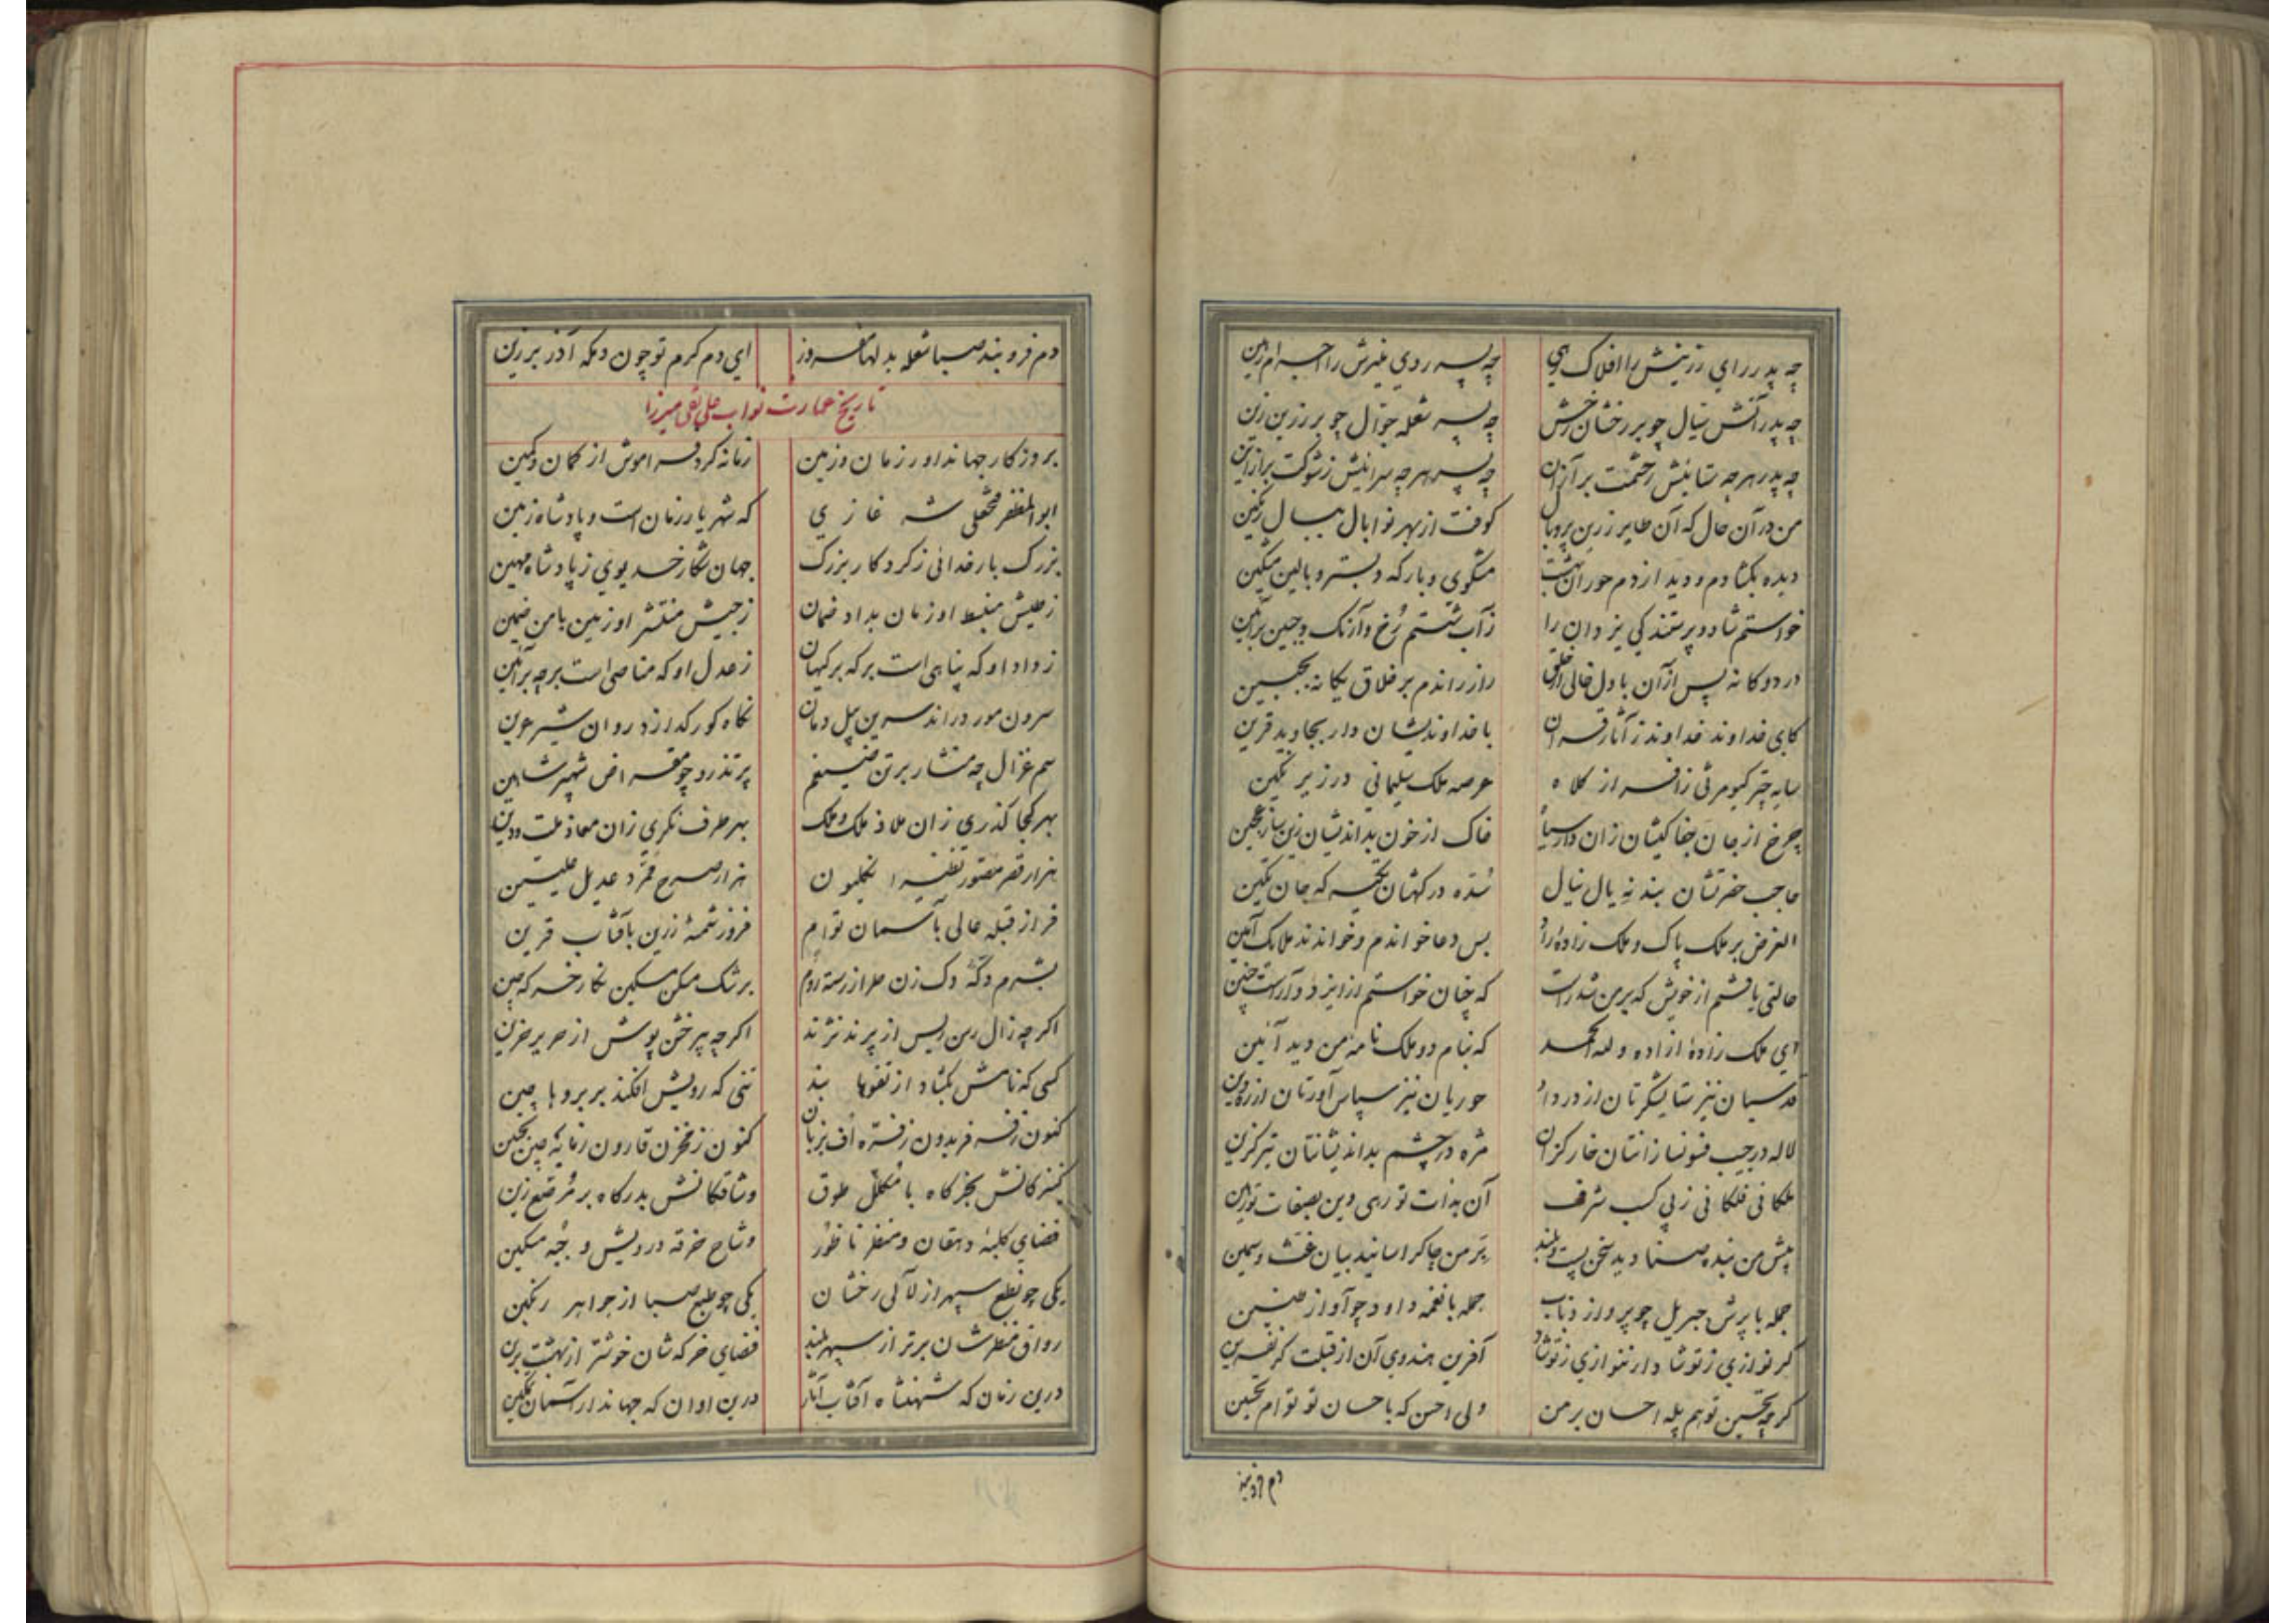 چه پدر رای رزینش را افلاک رهی چه پسر روی منیرش را اجرام رهین
چه پدر آتش نیال چو بر رخشان رخش چه پسر شعله جوال چو بر زرین زین
چه پدر هر چه ستایش ز حشمت بر از آن چه پسر هر چه سرایش ز شوکت بر از این
من در آن حال که آن طایر زرین پر و بال کوفت از بهر نوا بال ببال رنگین
دیده بگشادم و دید از دم حوران بهشت مشکوی و بارگه و بستر و بالین مشکین
خواستم شاد و پرستندگی یزدان را ز آب شستم رخ و آرنگ و جبین بر آیین
در دوگانه پس از آن با دل خالی از خلق راز راندم بر خلاق یگانه بجبین
کای خداوند خداوند ز آثار قرآن با خداوندیشان دار بجاوید قرین
سایه چتر کیومرثی ز افسر از کلاه عرصه ملک سلیمانی در زیر نگین
چرخ از جان جفا کیشان زان دار خاک از خون بداندیشان زین ساز عجین
حاجب حضرتشان بنده ینال شده درگهشان تکین
الغرض بر ملک پاک و ملک زاده راد بس دعا خواندم و خواندند ملایک آمین
حالتی یافتم از خویش که بر من شد راست که چنان خواستم از ایزد و آراست چنین
ای ملک زاده آزاده و لله الحمد که بنام دو ملک نامه من دید آیین
قدسیان نیز ستایشگرتان از در داد حوریان نیز سپاس آورتان از ره دین
لاله در جیب فسونسازانتان خار گزان مژه در چشم بداندیشانتان تیر گزین
ملکانی فلکانی ز پی کسب شرف آن بذات تو رهی وین بصفات تو رهین
پیش من بنده صنادید سخن پست و بلند بر من چاکر اسانید بیان غث و سمین
جمله با پرش جبریل چو پرواز ذباب جمله با نغمه داود چو آواز طنین
گر نوازی ز تو شاد ار ننوازی ز تو شاد آفرین هندوی آن از قبلت گر نفرین
گر چه تحسین تو هم پله احسان بر من ولی احسن که با حسان تو توام تحسین
دم فرو بند
دم فرو بند صبا شعله بدلها مفروز ای دم گرم تو چون دمگه آذر برزین
تاریخ عمارت نواب علینقی میرزا
بروزگار جهاندار ور زمان و زمین زمانه کرد فراموش از گمان و کمین
ابوالمظفر فتحعلی شه غازی که شهریار زمان است و پادشاه زمین
بزرگ بار خدائی ز کردگار بزرگ جهان شکار خدیوی ز پادشاه مهین
ز طیش منبسط او زمان بداد ضمان ز جیش منتشر او زمین بامن ضمین
ز داد او که پناهی است بر که بر کیهان ز عدل او که مناصی است بر چه بر آیین
سرون مور در اند سرین پیل دمان نگاه گور گدازد روان شیر عرین
سم غزال چه منشار بر تن ضیغم پر تذرو چو مقراض شهپر شاهین
بهر کجا گذری زان ملاذ ملک و ملک بهر طرف نگری زان معاذ ملت و دین
هزار قصر مقصور نظیر انگلیون هزار صرح ممرد عدیل علیین
فراز قبله عالی بآسمان توام فروز شمسه زرین بآفتاب قرین
بشرم دکه دک زن طراز رسته روم برشک مسکن مسکین نگار خرگه چین
اگر چه زال رسن ریس از پرند نژند اگر چه پیر خشن پوش از حریر حزین
کسی که نامش بگشاد از تفوها بند تنی که رویش افکند بر بروها چین
کنون ز فر فریدون ز فره اف بزبان کنون ز مخزن قارون ز مایه چین بجبین
کنیزکانش بخرگاه با مکلل طوق وشاقکانش بدرگاه بر مرصع زین
فضای کلبه دهقان و منظر ناطور وشاح خرقه درویش و جبه مسکین
یکی چو نطع سپهر از لآلی رخشان یکی چو طبع صبا از جواهر رنگین
رواق منظرشان برتر از سپهر بلند فضای خرگهشان خوشتر از بهشت برین
درین زمان که شهنشاه آفتاب آثار درین اوان که جهاندار آسمان تمکین